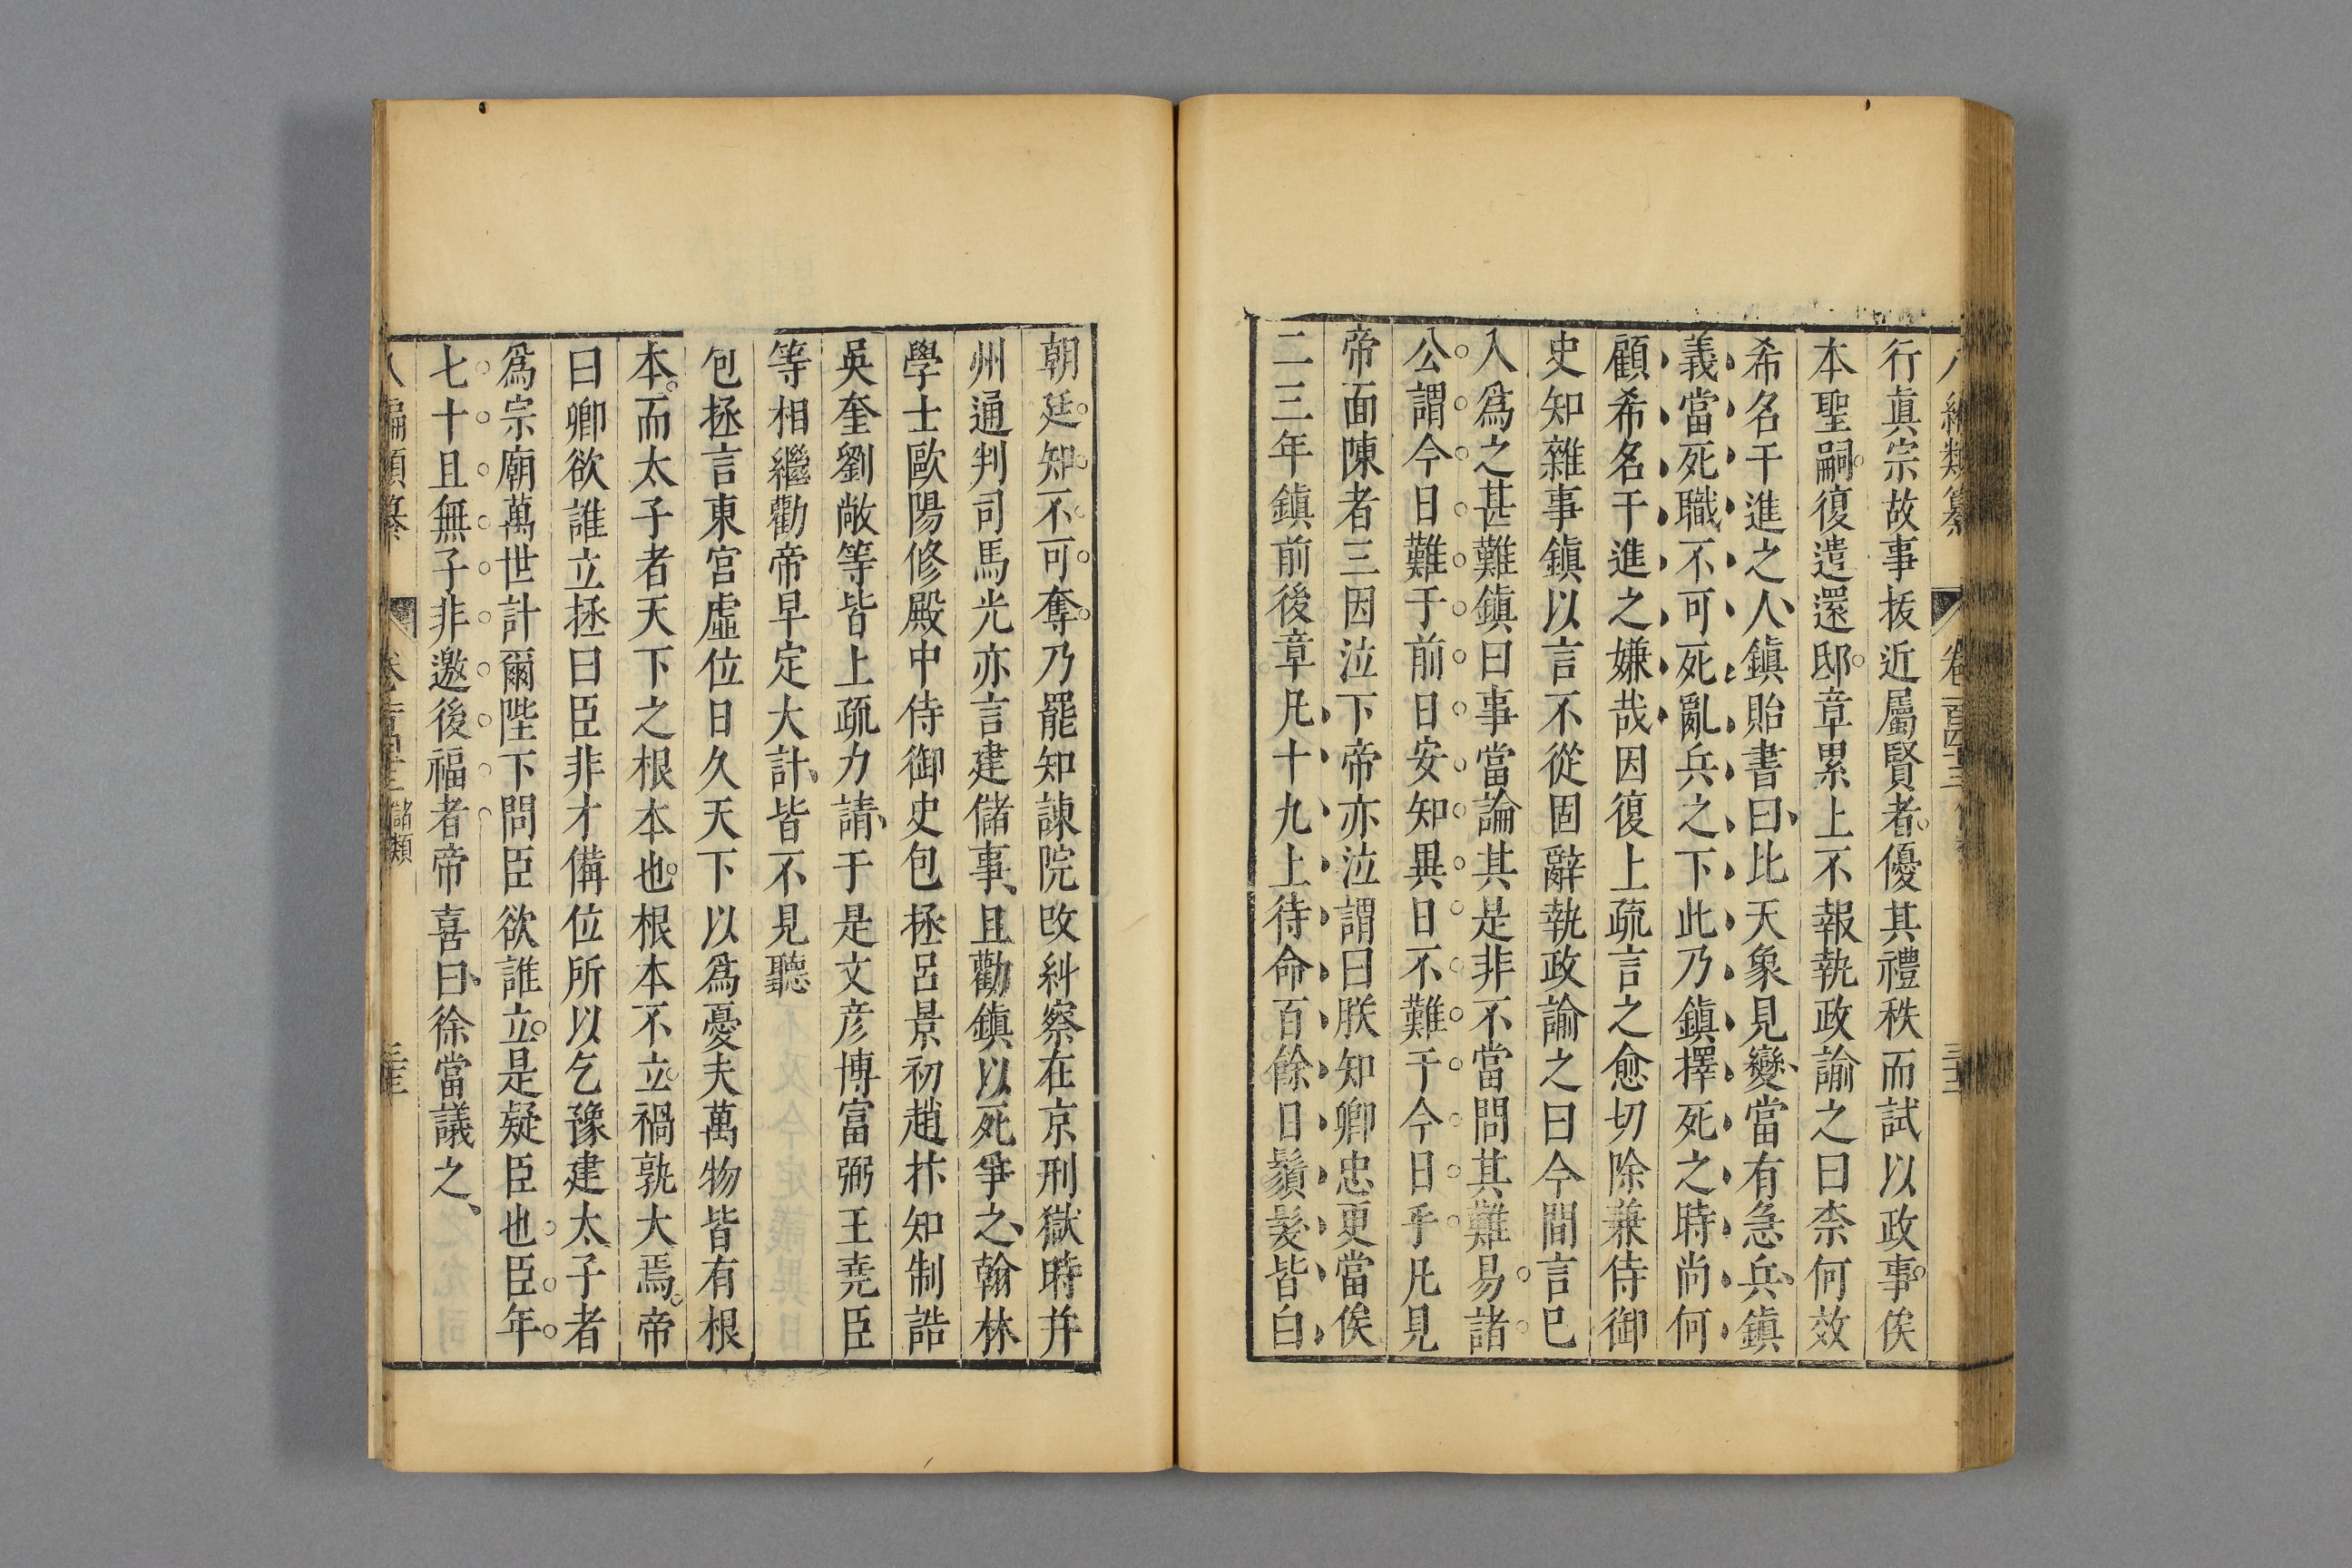 八編類纂 卷一百四十三
行眞宗故事拔近屬賢者優其禮秩而試以政事俟
本聖嗣復遣還邸章累上不報執政諭之曰柰何效
希名干進之人鎮貽書曰比天象見變當有急兵鎮
義當死職不可死亂兵之下此乃鎮擇死之時尚何
顧希名干進之嫌哉因復上疏言之愈切除兼侍御
史知雜事鎮以言不從固辭執政諭之曰今間言已
入爲之甚難鎮曰事當論其是非不當問其難易諸
公謂今日難于前日安知異日不難于今日乎凡見
帝面陳者三因泣下帝亦泣謂曰朕知卿忠更當俟
二三年鎮前後章凡十九上待命百餘日鬚髮皆白
朝廷知不可奪乃罷知諫院改糾察在京刑獄時并
州通判司馬光亦言建儲事且勸鎮以死爭之翰林
學士歐陽修殿中侍御史包拯呂景初趙抃知制誥
吳奎劉敞等皆上疏力請于是文彦博富弼王堯臣
等相繼勸帝早定大計皆不見聽
包拯言東宮虛位日久天下以爲憂夫萬物皆有根
本而太子者天下之根本也根本不立禍孰大焉帝
曰卿欲誰立拯曰臣非才備位所以乞豫建太子者
爲宗廟萬世計爾陛下問臣欲誰立是疑臣也臣年
七十且無子非邀後福者帝喜曰徐當議之
八編類纂 卷一百四十三 儲類